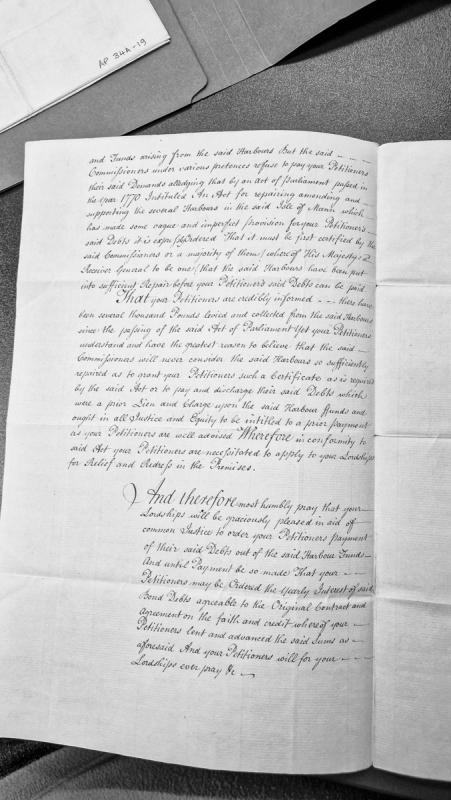 AP 34A-19
and Funds arising from the said Harbours But the said
Commissioners under various pretences refuse to pay your Petitioners
their said Demands alledging that by an act of Parliament passed in
the year 1770 Intituled An Act for repairing amending and
supporting the several Harbours in the said Isle of Mann which
has made some vague and imperfect Provision for your Petitioners
said Debts it is expressly Ordered That it must be first certified by the
said Commissioners or a majority of them (whereof His Majestys
Receiver General to be one) that the said Harbours have been put
into sufficient Repair before your Petitioners said Debts can be paid
That your Petitioners are credibly informed there have
been several thousand Pounds levied and collected from the said Harbours
since the passing of the said Act of Parliament Yet your Petitioners
understand and have the greatest reason to believe that the said
Commissioners will never consider the said Harbours so sufficiently
repaired as to grant your Petitioners such a Certificate as is required
by the said Act or to pay and discharge their said Debts which
were a prior Lien and Charge upon the said Harbour Funds and
ought in all Justice and Equity to be intitled to a prior payment
as your Petitioners are well advised Wherefore in conformity to
said Act your Petitioners are necessitated to apply to your Lordships
for Relief and Redress in the Premises.
And therefore most humbly pray that your
Lordships will be graciously pleased in aid of
common Justice to order your Petitioners payment
of their said Debts out of the said Harbour Funds
And until Payment be so made That your
Petitioners may be Ordered the yearly Interest of said
Bond Debts agreable to the Original Contract and
Agreement on the faith and credit whereof your
Petitioners lent and advanced the said Sums as
aforesaid And your Petitioners will for your
Lordships ever pray &c